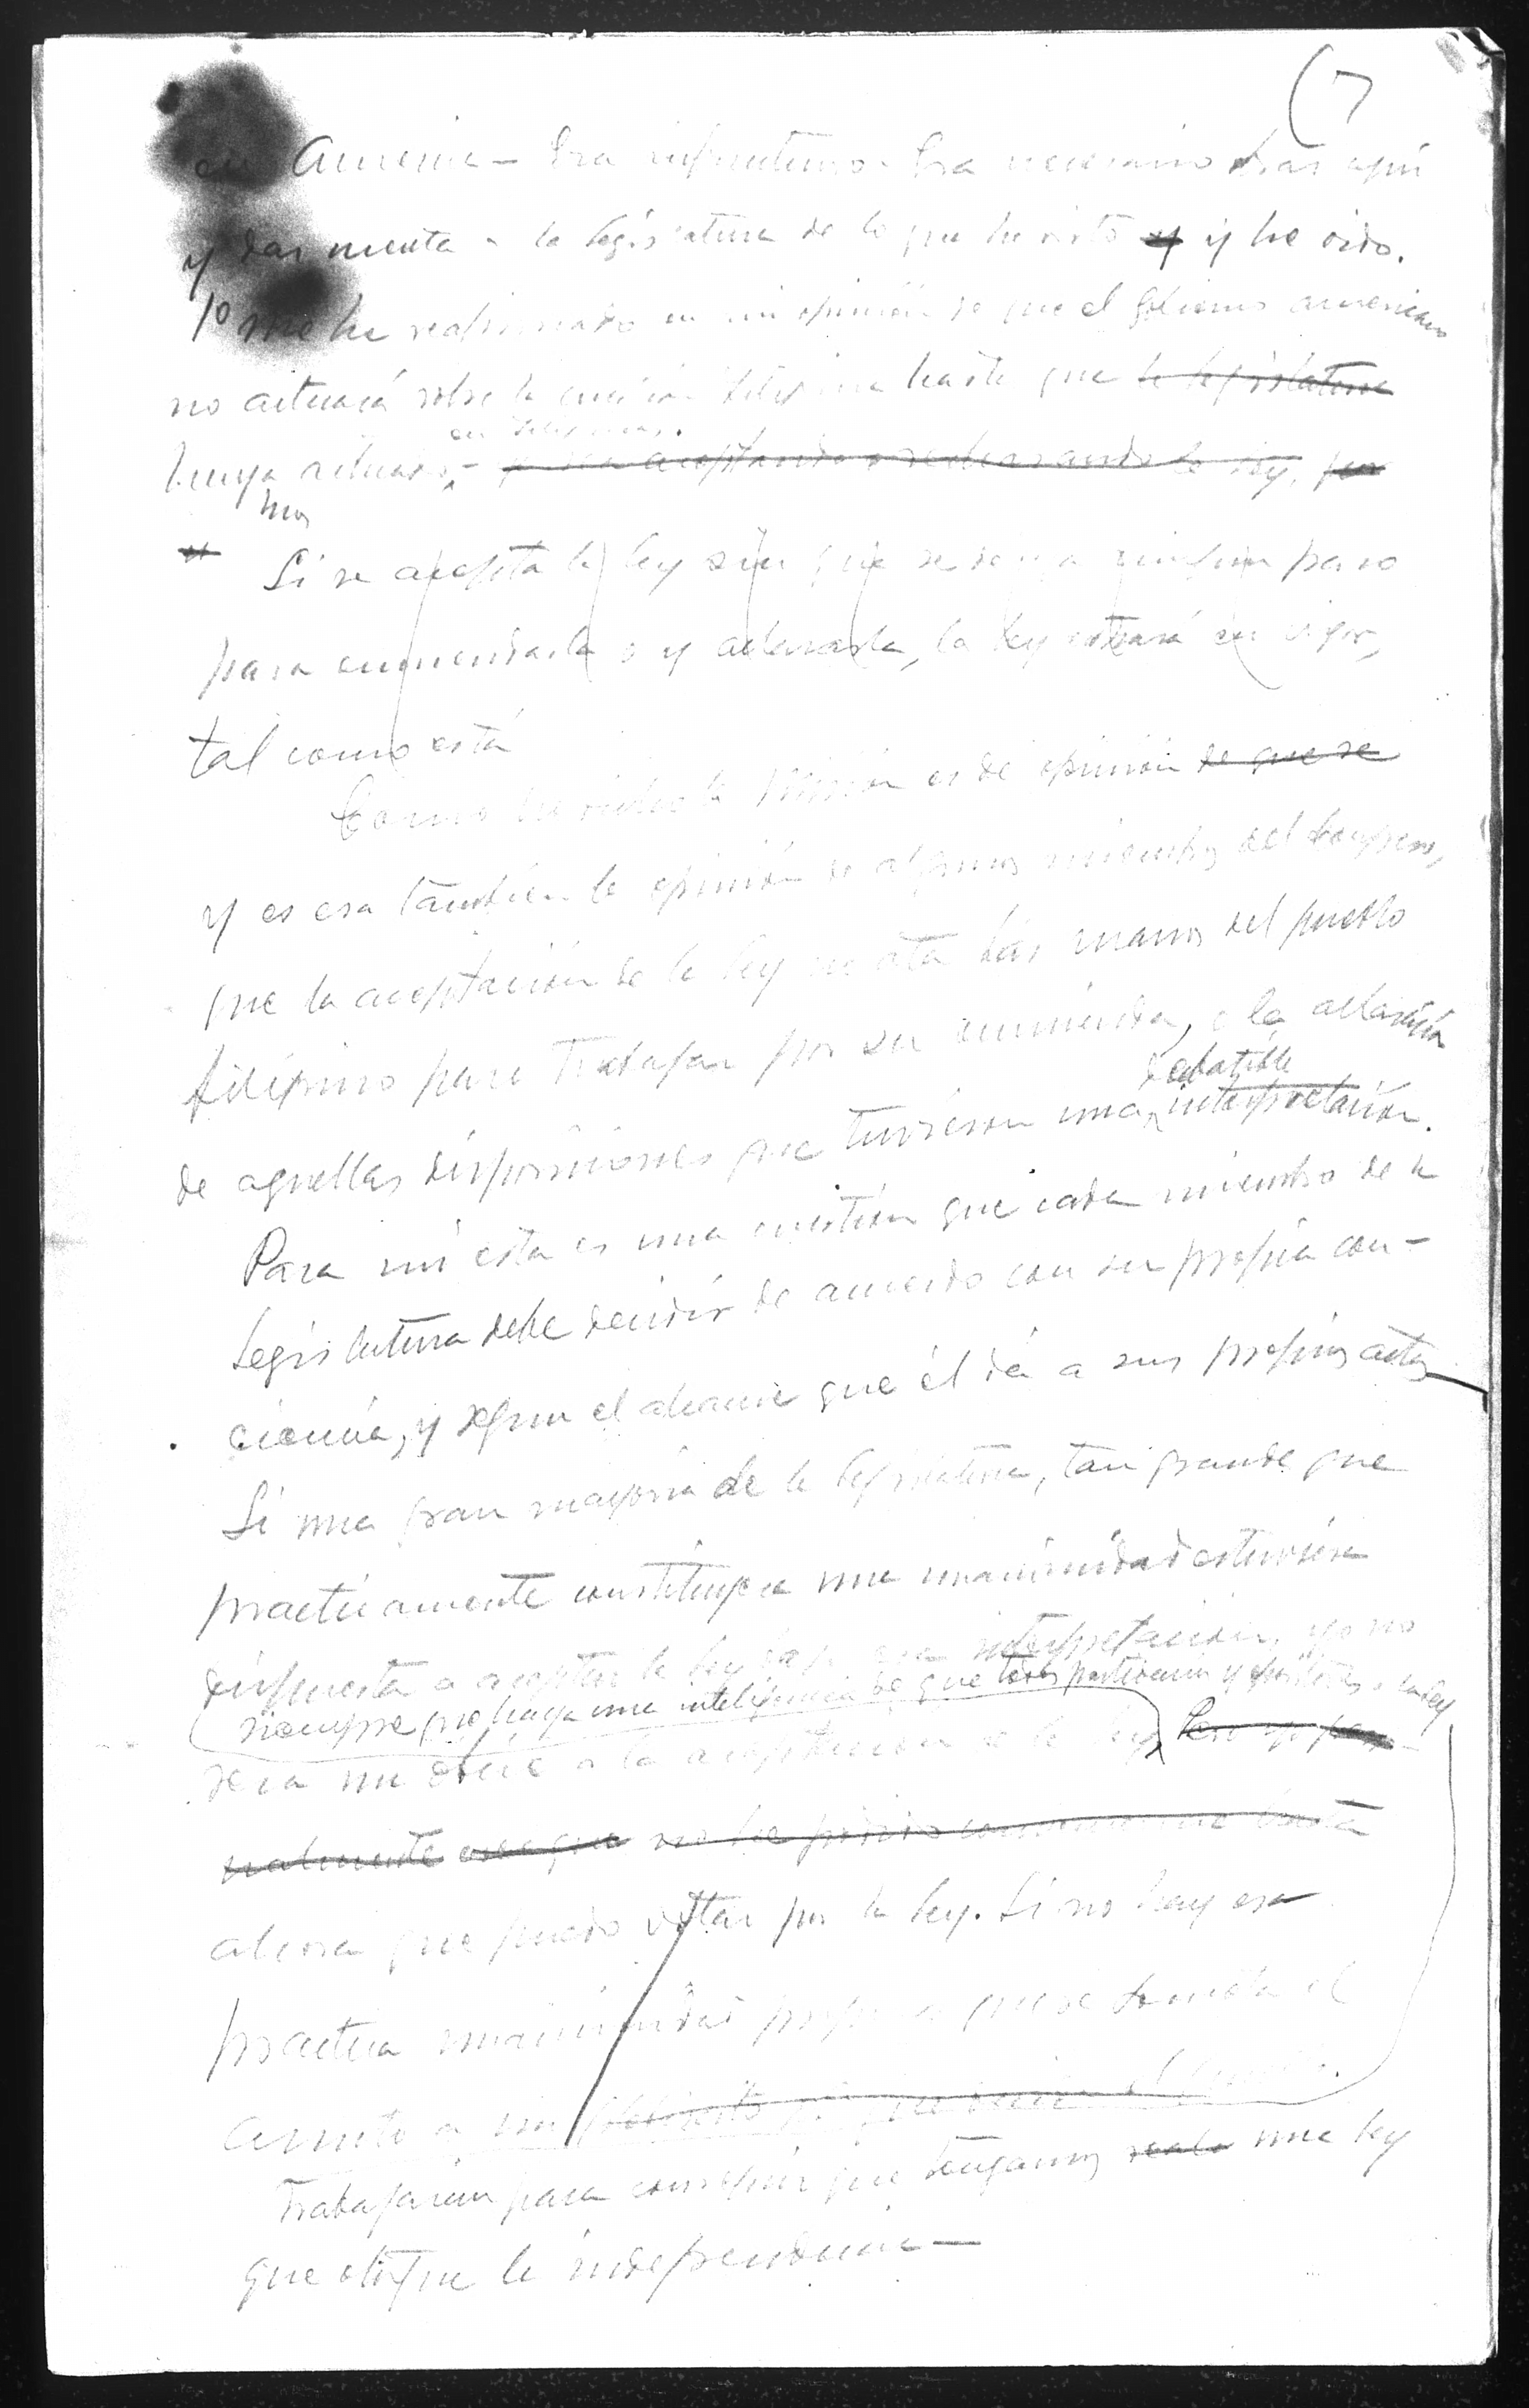 (7
en America — Era infructuoso. Era necesario estar aquí
y dar cuenta a la legislatura de lo que he visto y y he oido.
1º me he reafirmado en mi opinión de que el Gobierno americano
no actuará sobre la cuestión filipina hasta que la legislatura
en Filipinas.
haya actuado — o sea aceptando o rechazando la ley, por
Si se acepta la ley sin que se dé ningun paso
para enmendarla o y aclararla, la ley estará en vigor,
tal como está
Como he dicho la Misión es de opinión de que se
y es esa también la opinión de algunos miembros del Congreso,
que la aceptación de la ley no ata las manos del pueblo
filipino para trabajar por su enmienda, o la aclaración
debatible
de aquellas disposiciones que tuvieran una interpretación.
Para mi esta es una cuestión que cada miembro de la
Legislatura debe decidir de acuerdo con su propia con-
ciencia, y segun el alcance que él dá a sus propios actos
Si una gran mayoria de la legislatura, tan grande que
practicamente constituya una unanimidad estuviera
dispuesta a aceptar la ley bajo esa interpretación, yo no
siempre que haya una inteligencia de que todos
seria un obice a la aceptación de la ley Pero yo perso-
nalmente creo que no he podido convencerme hasta
ahora que puedo votar por la ley. Si no hay esa
practica unanimidad propongo que se someta el
asunto a un plebiscito
trabajarán para conseguir que tengamos una ley
que otorgue la independencia —